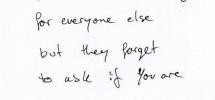 for everyone else
but they forget
to ask if you are